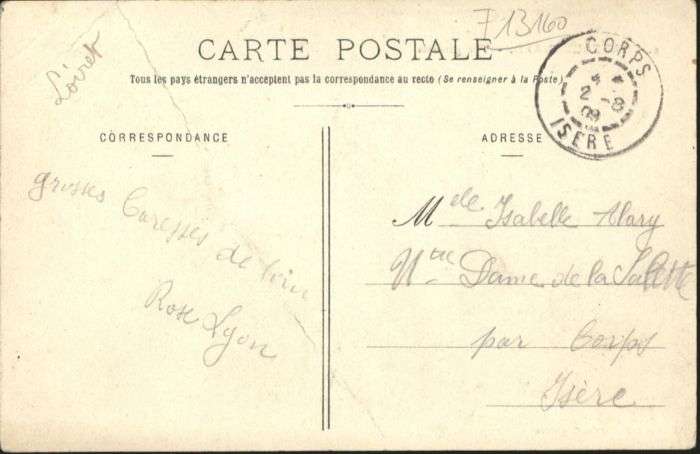 F13160
Loiret
CARTE POSTALE
Tous les pays étrangers n'acceptent pas la correspondance au recto (Se renseigner à la Poste)
CORPS
2 -8
09
ISERE
CORRESPONDANCE
ADRESSE
grosses Caresses de loin
Rose Lyon
Melle Isabelle Alary
Ntre Dame de la Salette
par Corps
Isère